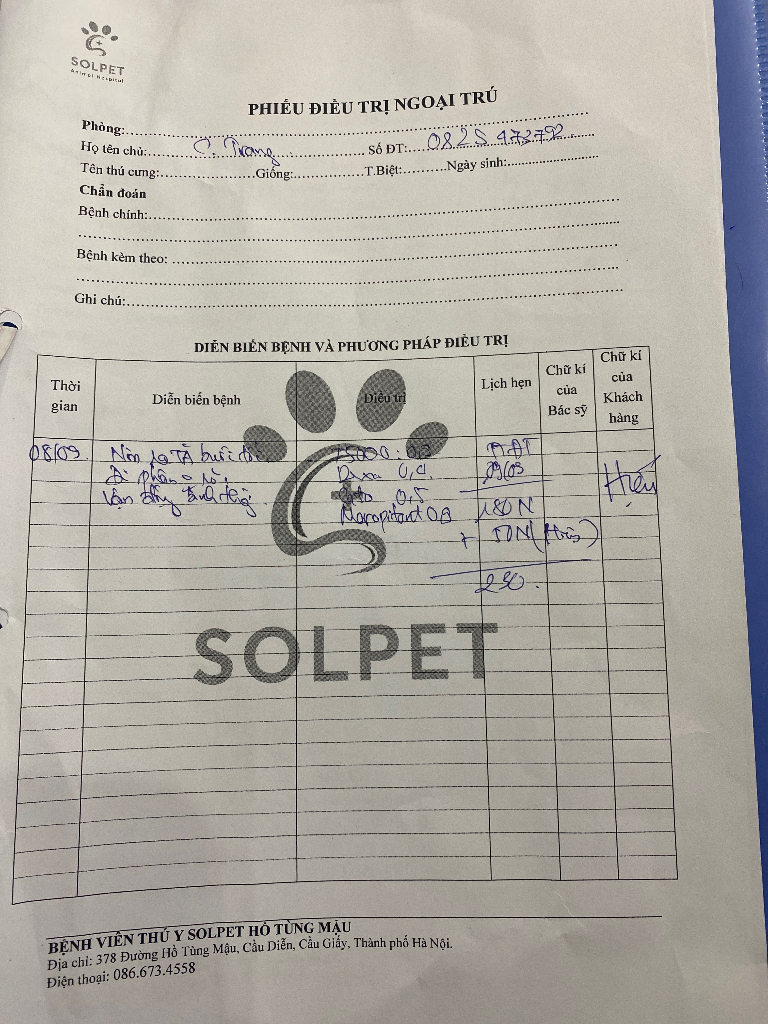 SOLPET
Animal Hospital
PHIẾU ĐIỀU TRỊ NGOẠI TRÚ
Phòng:
Họ tên chủ: C. Trang Số ĐT: 0825 473792
Tên thú cưng: Giống: T.Biệt: Ngày sinh:
Chẩn đoán
Bệnh chính:
Bệnh kèm theo:
Ghi chú:
DIỄN BIẾN BỆNH VÀ PHƯƠNG PHÁP ĐIỀU TRỊ
Thời gian Diễn biến bệnh Điều trị Lịch hẹn Chữ kí của Bác sỹ Chữ kí Của Khách hàng
08/09 Nôn ra TĂ buổi
Đi phân
Vận động
0,5
Maropitant 0,8
09/09
180N
+ 50N
230.
Hiếu
SOLPET
BỆNH VIỆN THÚ Y SOLPET HỒ TÙNG MẬU
Địa chỉ: 378 Đường Hồ Tùng Mậu, Cầu Diễn, Cầu Giấy, Thành phố Hà Nội.
Điện thoại: 086.673.4558